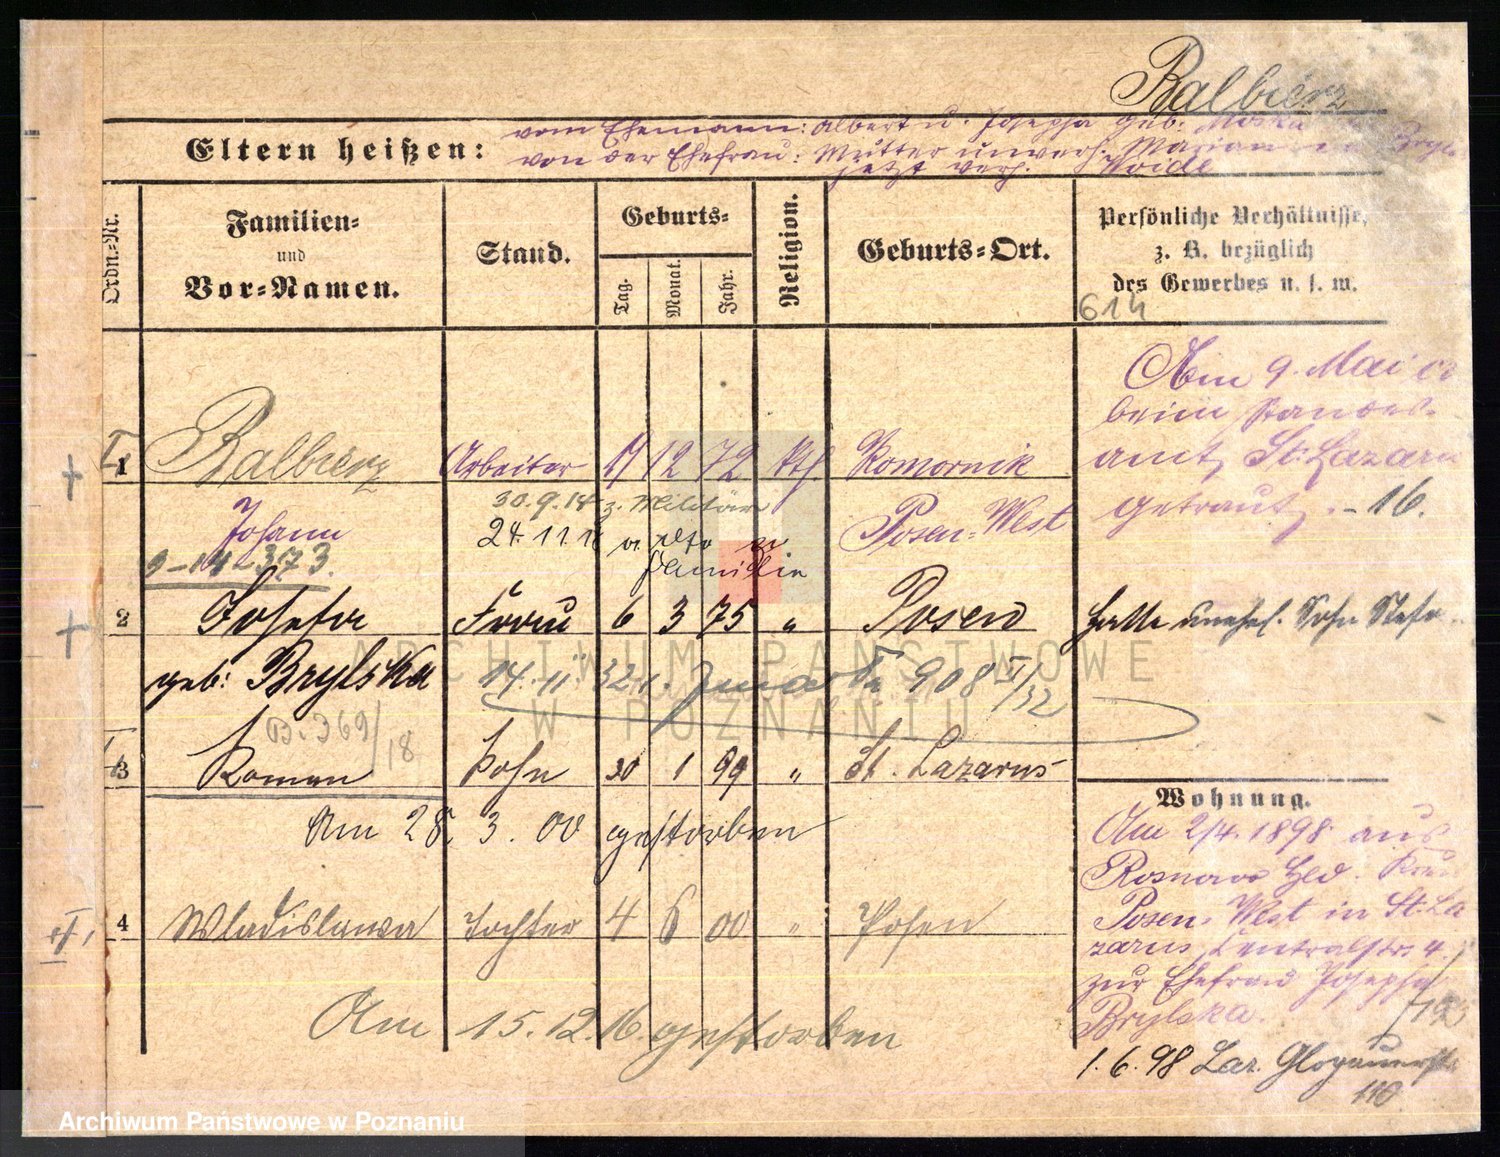 Balbierz
Eltern heißen:
vom Ehemann: Albert u. Josepha geb.
von der Ehefrau: Mutter unverh. Marianna Bryls
jetzt verh. Noide
Ordn.=Nr.
Familien=
und
Vor=Namen.
Stand.
Geburts=
Tag.
Monat.
Jahr.
Religion.
Geburts=Ort.
Persönliche Verhältnisse,
z. B. bezüglich
des Gewerbes u. s. w.
614
1 Balbierz Arbeiter 17 12 72 kth. Komornik
Johann 30.9.14 z. Militär Posen=West
24.11.18 zur
Familie
Am 9. Mai
beim Standes-
amt St. Lazarus
getraut. - 16.
2 Josefa Frau 6 3 75 " Posen
hatte unehel. Sohn Stefa
geb: Brylska 14. 11. 32 908
B. 369/18
3 Roman Sohn 30 1 99 " St. Lazarus
Am 28. 3. 00 gestorben
Wohnung.
Am 2/4. 1898 aus
Rosnowo
Posen=West in St. La
zarus, Centralstr. 4
zur Ehefrau Josepha
Brylska.
1.6.98 Laz. Glogauerstr.
110
4 Wladislawa Tochter 4 6 00 " Posen
Am 15.12.16. gestorben
ARCHIWUM PAŃSTWOWE
W POZNANIU
Archiwum Państwowe w Poznaniu